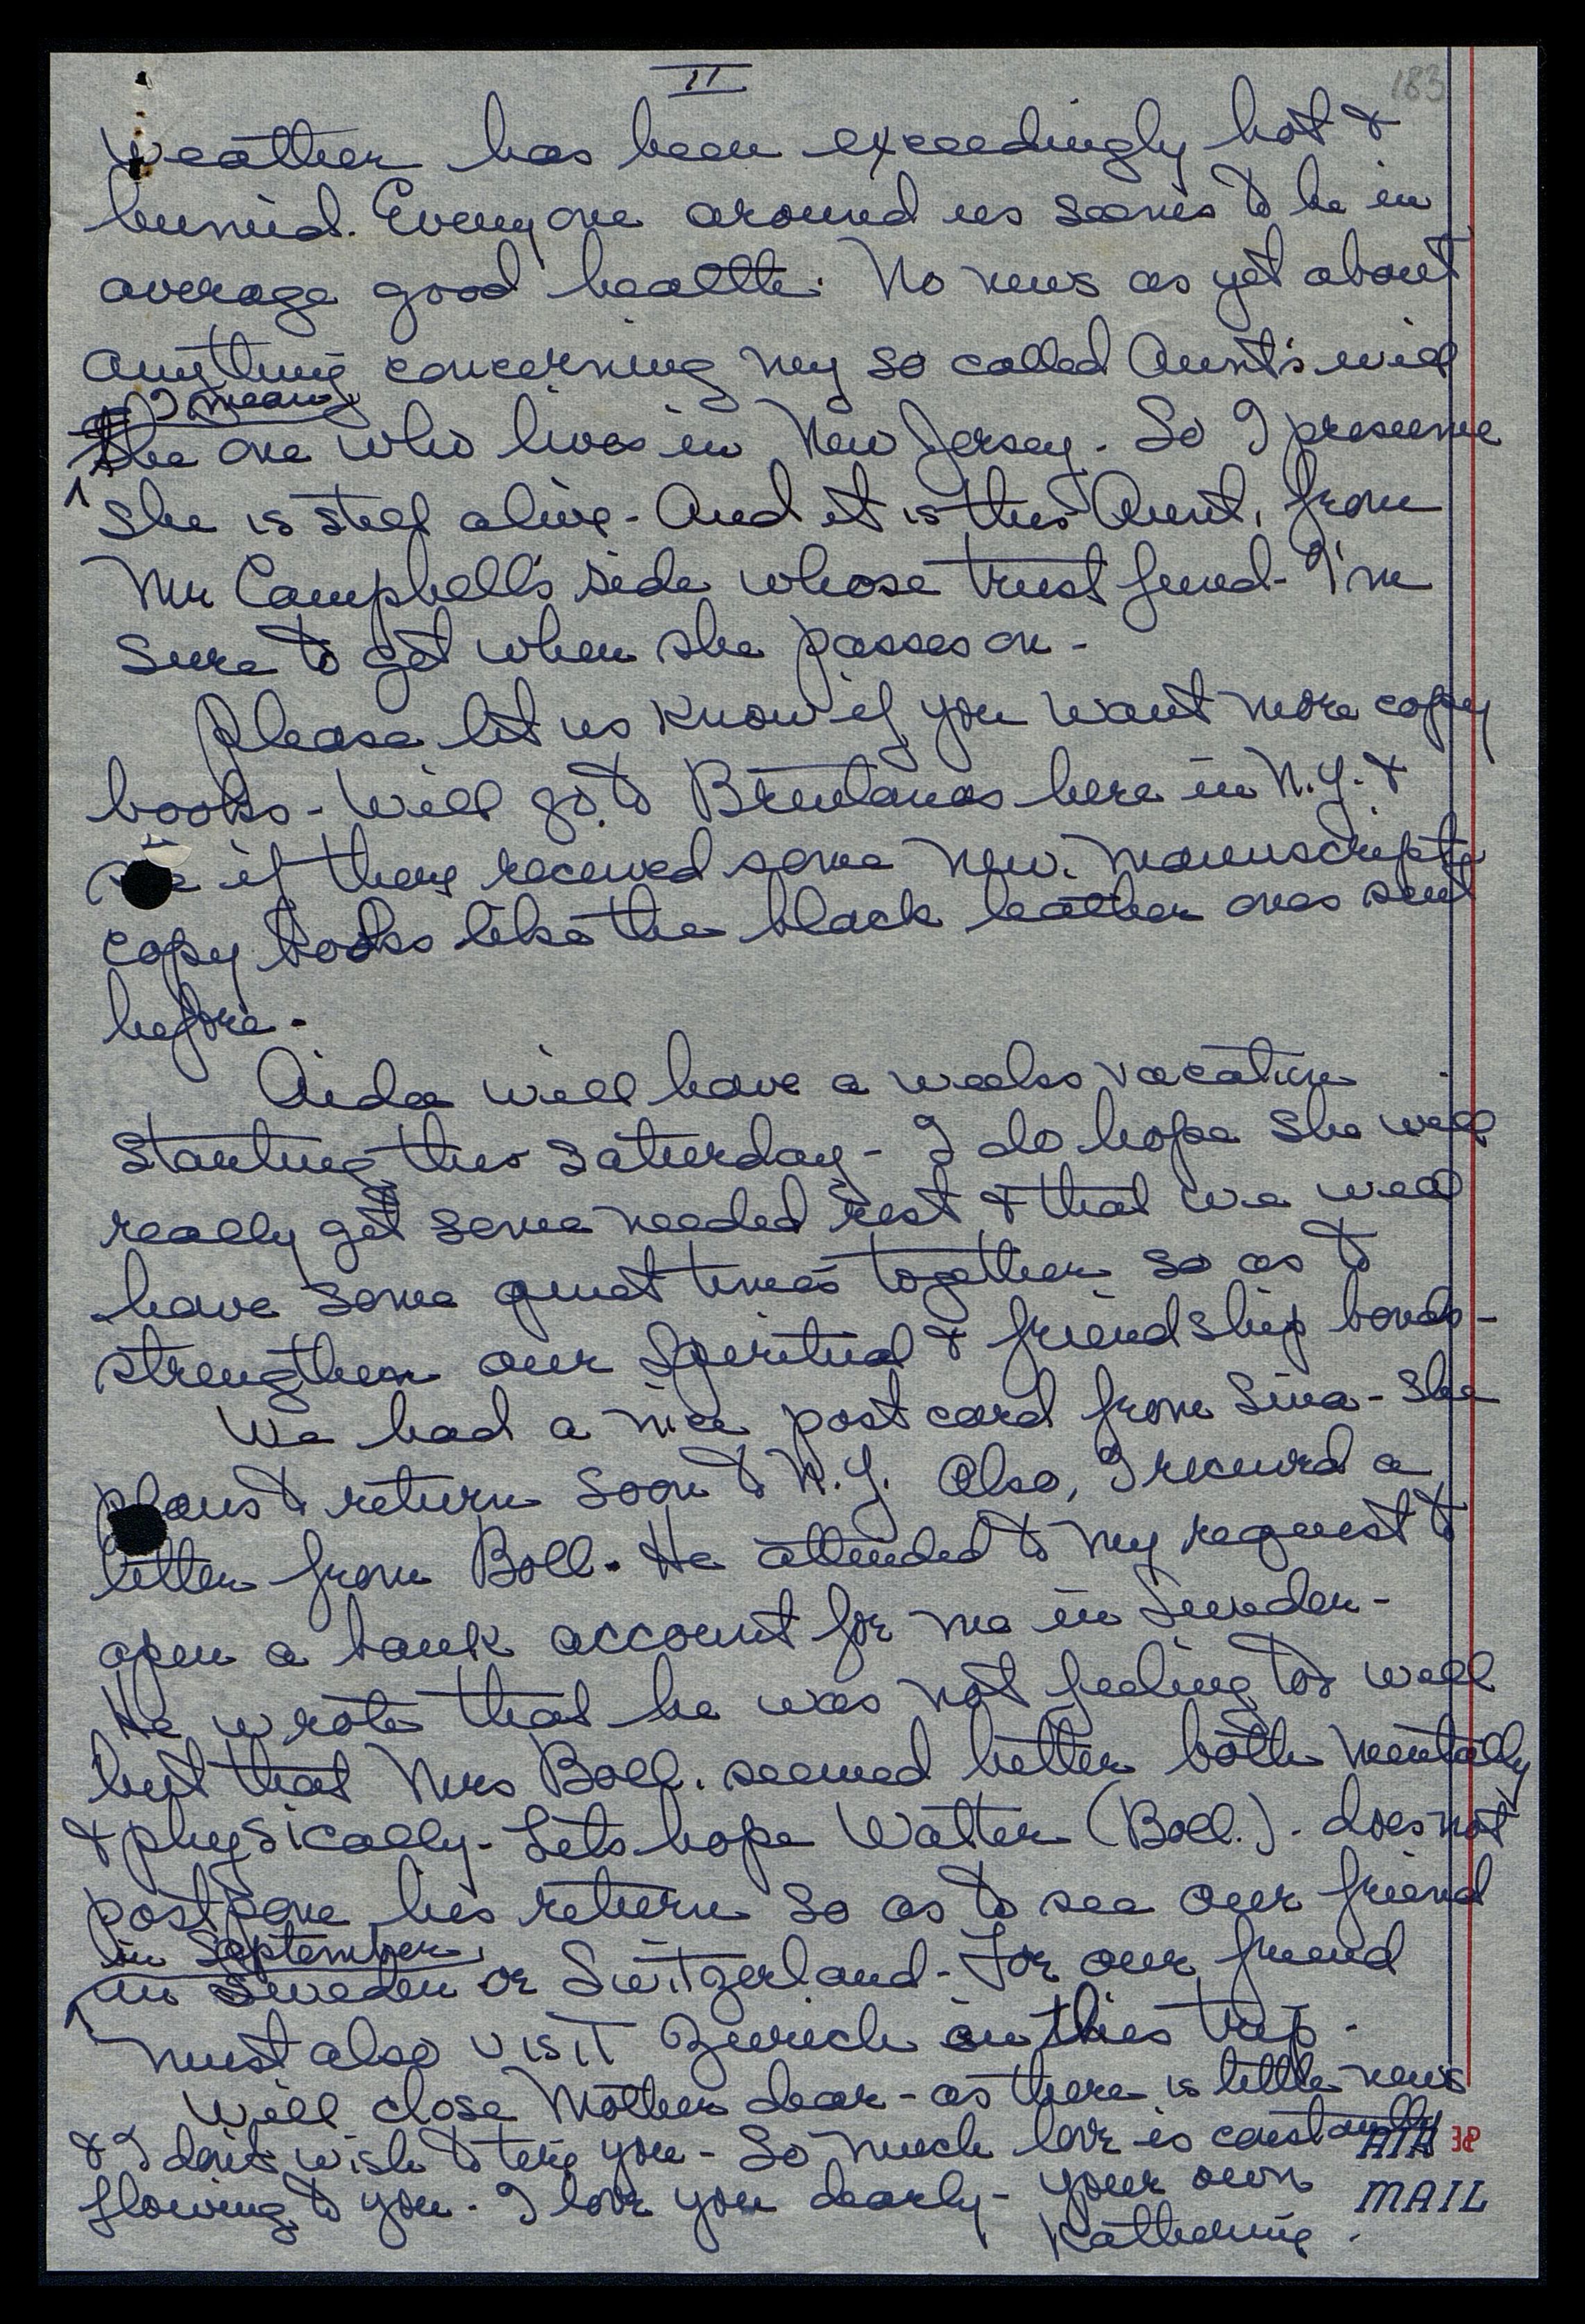 II
183
Weather has been exceedingly hot &
humid. Everyone around us seems to be in
average good health. No news as yet about
anything concerning my so called Aunt's will
I mean
the one who lives in New Jersey. So I presume
she is still alive - And it is this Aunt, from
Mr Campbell's side whose trust fund - I'm
sure to get when she passes on -
Please let us know if you want more copy
books - Will go to Brentanos here in N.Y. &
see if they received some new manuscripts
copy books like the black leather ones sent
before -
Aida will have a weeks vacation
starting this Saturday - I do hope she will
really get some needed rest & that we will
have some quiet times together so as to
strengthen our Spiritual & friendship bonds -
We had a nice post card from Sina - She
plans to return soon to N.Y. Also, I received a
letter from Boll. He attended to my request to
open a bank account for me in Sweden -
He wrote that he was not feeling too well
but that Mrs Boll. seemed better both mentally
& physically - Lets hope Walter (Boll.) - does not
postpone his return so as to see our friend
in September,
in Sweden or Switzerland - For our friend
must also visit Zurich on this trip -
Will close Mother dear - as there is little news
& I don't wish to tire you - So much love is constantly
flowing to you - I love you dearly - your own
Katherine
AIR 38
MAIL